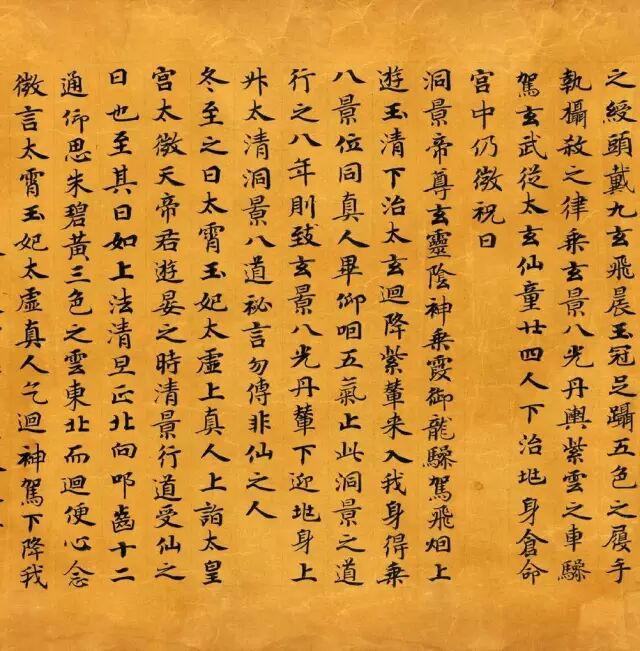 之綬頭戴九玄飛晨玉冠足躡五色之履手
執攝殺之律乗玄景八光丹輿紫雲之車驂
駕玄武從太玄仙童廿四人下治地身倉命
宮中仍微祝曰
洞景帝尊玄靈陰神乗霞御龍驂駕飛烟上
遊玉清下治太玄迴降紫輦来入我身得乗
八景位同真人畢仰咽五氣止此洞景之道
行之八年則致玄景八光丹輦下迎地身上
升太清洞景八道祕言勿傳非仙之人
冬至之日太霄玉妃太虛上真人上詣太皇
宮太微天帝君遊晏之時清景行道受仙之
日也至其日如上法清旦正北向叩齒十二
通仰思朱碧黃三色之雲東北而迴便心念
微言太霄玉妃太虛真人乞迴神駕下降我